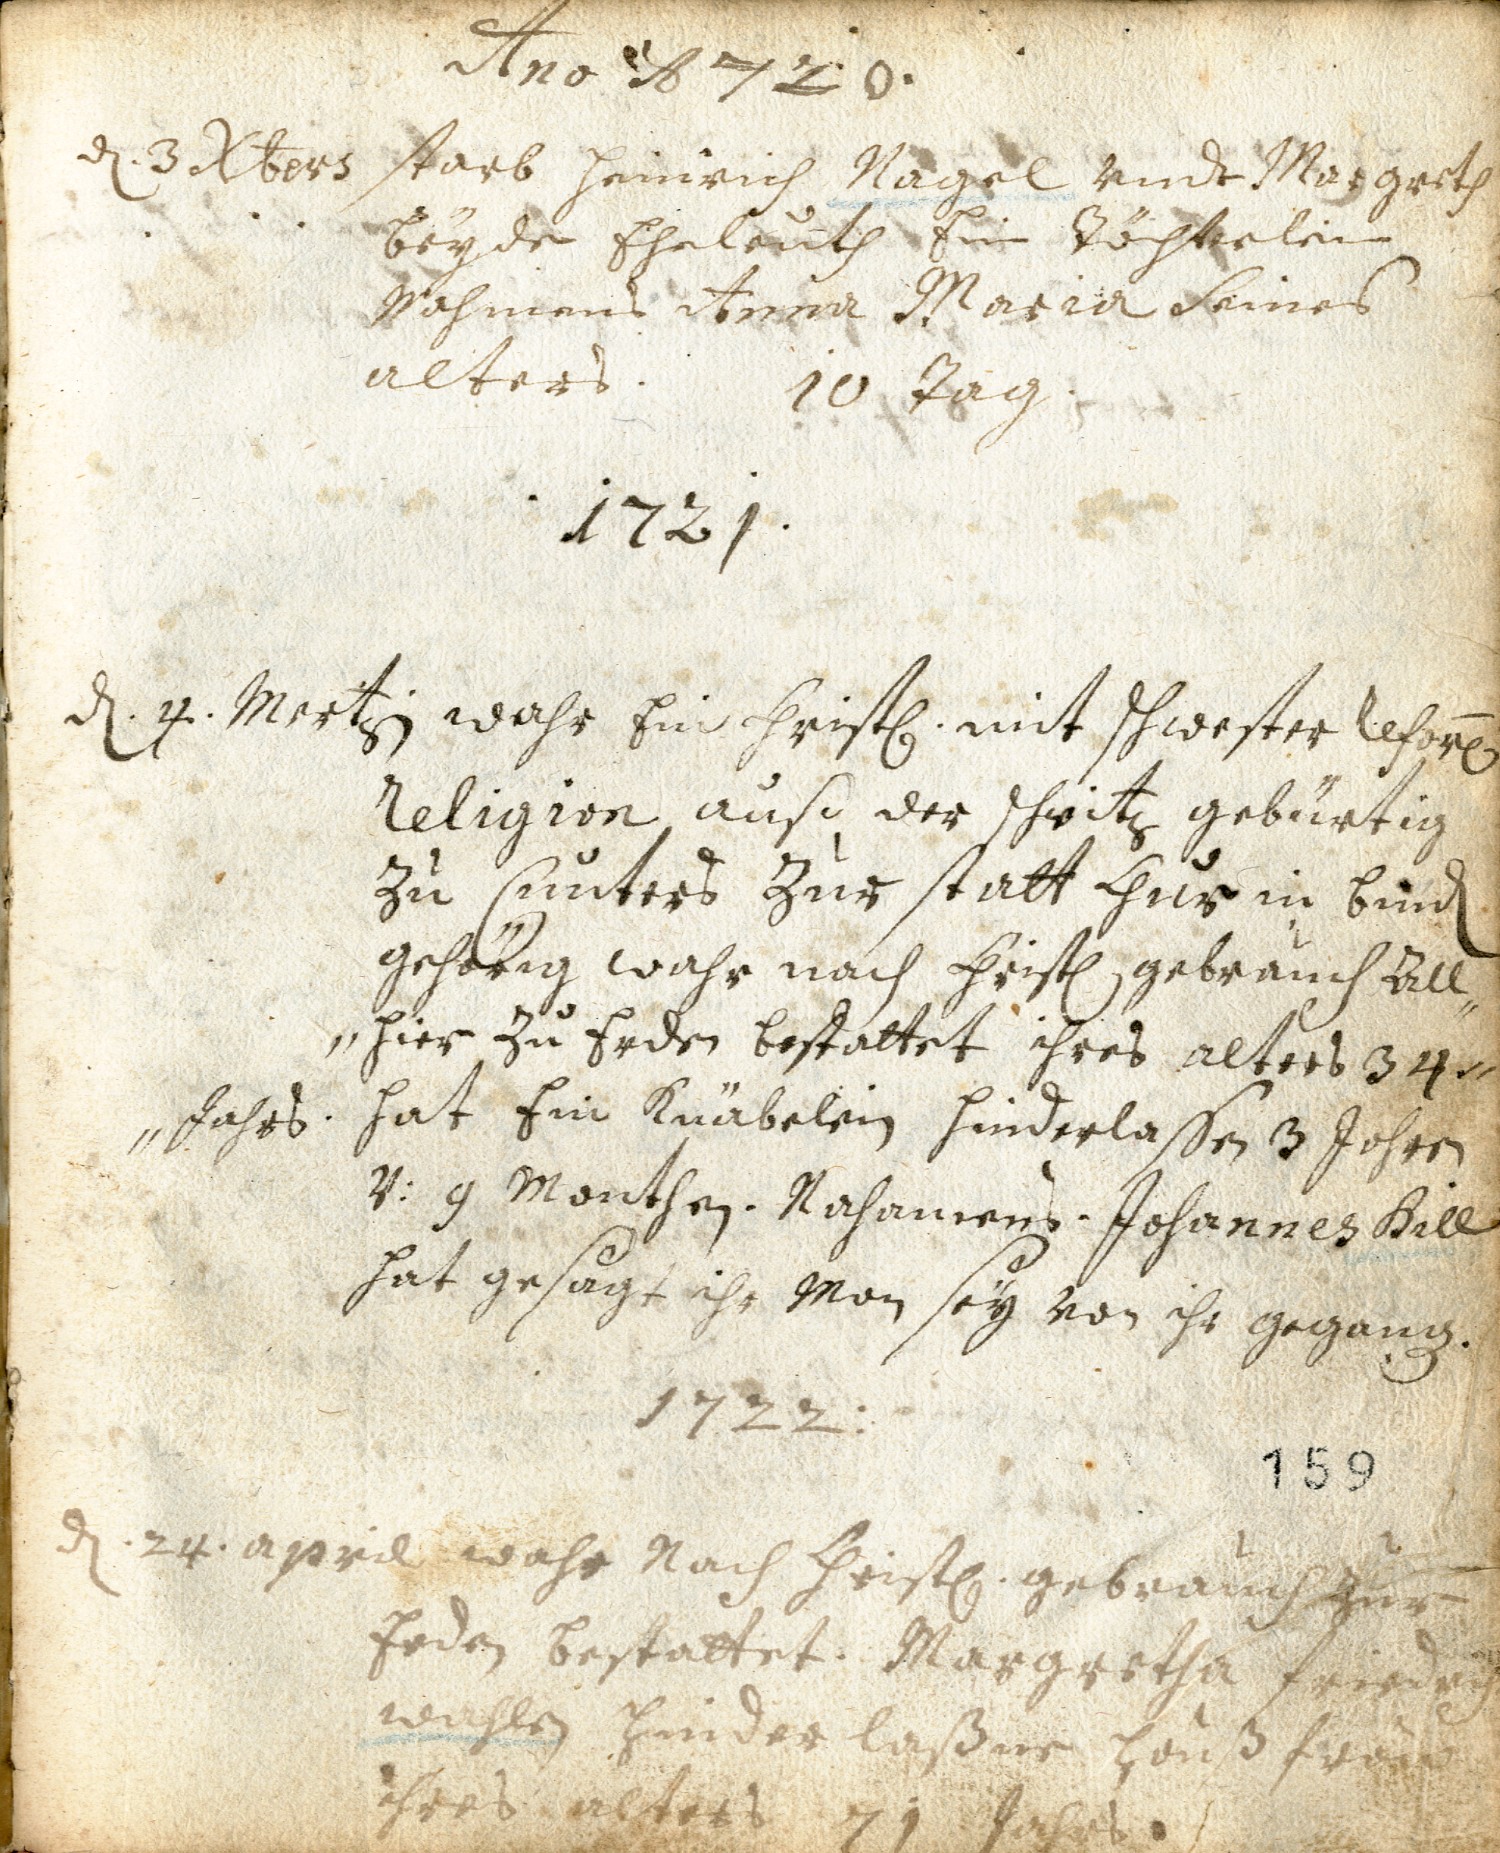 Ano 1720.
d. 3 Xbers starb Heinrich Nagel undt Margreth
beyde Eheleuth Ein Töchterlein
Nahmens Anna Maria seines
alters. 10 Tag.
1721.
d. 4. Mertz wahr Ein Christl. mit schwester Reform
Religion auß der schweitz gebürtig
Zu Zur statt Chur in
gehörig wahr nach Christl gebrauch All„
„hier Zu Erden bestattet ihres alters 34„
„Jahrs. hat Ein Knäbelein hinderlassen 3 Johren
v: 9 Monthen. Nahamens. Johannes Kill
hat gesagt ihr Man sey von ihr gegang.
1722:
159
d. 24. april wahr Nach Christl. gebrauch Zur
Erden bestattet. Margretha friedrich
wahlen hinder laßne haußfraw
ihres alters 71 Jahrs.